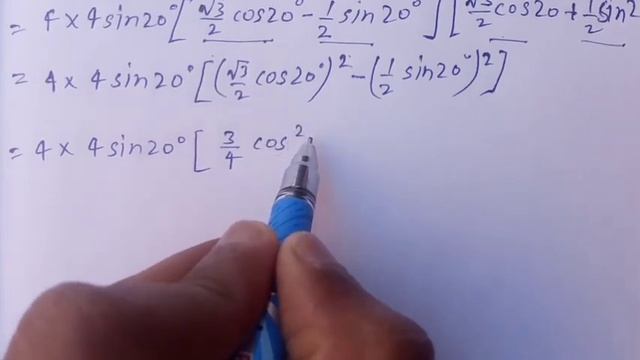 = 4 × 4 sin20° [ √3/2 cos20° - 1/2 sin20° ] [ √3/2 cos20 + 1/2 sin2
= 4 × 4 sin20° [ (√3/2 cos20°)² - (1/2 sin20°)² ]
= 4 × 4 sin20° [ 3/4 cos²